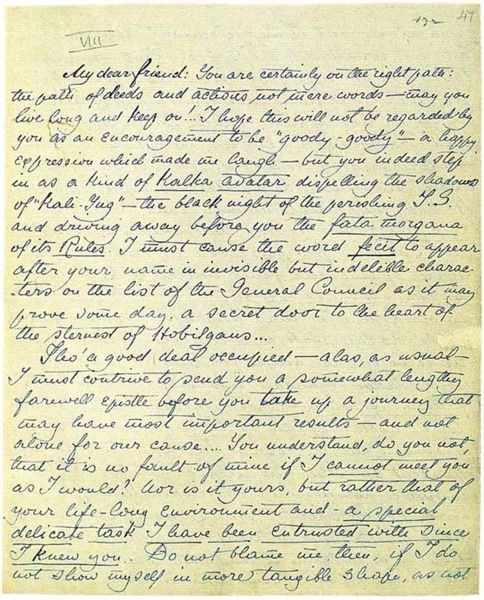 132 47
VIII
My dear friend: You are certainly on the right path:
the path of deeds and actions not mere words — may you
live long and keep on!.. I hope this will not be regarded by
you as an encouragement to be "goody-goody" — a happy
expression which made me laugh — but you indeed step
in as a kind of Kalka avatar dispelling the shadows
of "Kali-Yug" — the black night of the perishing T.S.
and driving away before you the fata morgana
of its Rules. I must cause the word fecit to appear
after your name in invisible but indelible charac-
ters on the list of the General Council as it may
prove some day, a secret door to the heart of
the sternest of Hobilgans...
Tho' a good deal occupied — alas, as usual —
I must contrive to send you a somewhat lengthy
farewell epistle before you take up a journey that
may have most important results — and not
alone for our cause.... You understand, do you not,
that it is no fault of mine if I cannot meet you
as I would? Nor is it yours, but rather that of
your life-long environment and — a special
delicate task I have been entrusted with since
I knew you.. Do not blame me then, if I do
not show myself in more tangible shape, as not